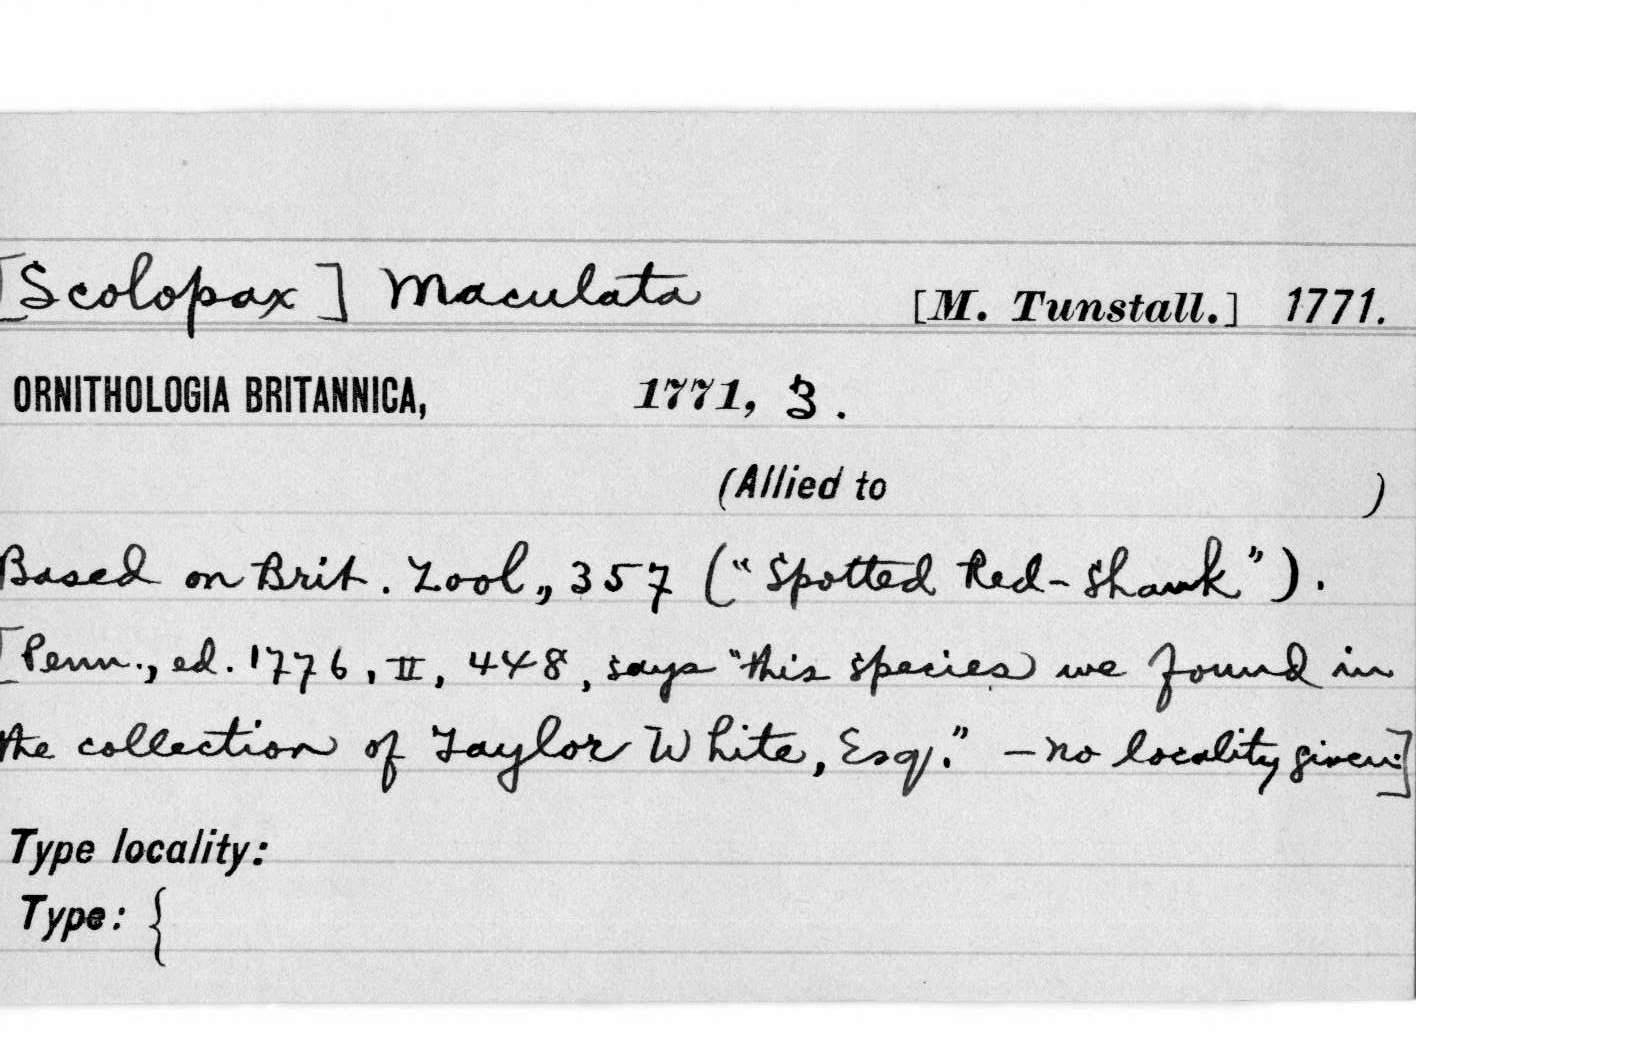 [Scolopax] Maculata [M. Tunstall.] 1771.
ORNITHOLOGIA BRITANNICA, 1771, 3.
(Allied to )
Based on Brit. Zool., 357 ("Spotted Red-shank").
[Penn., ed. 1776, II, 448, says "this species we found in
the collection of Taylor White, Esq." — no locality given.]
Type locality:
Type: {